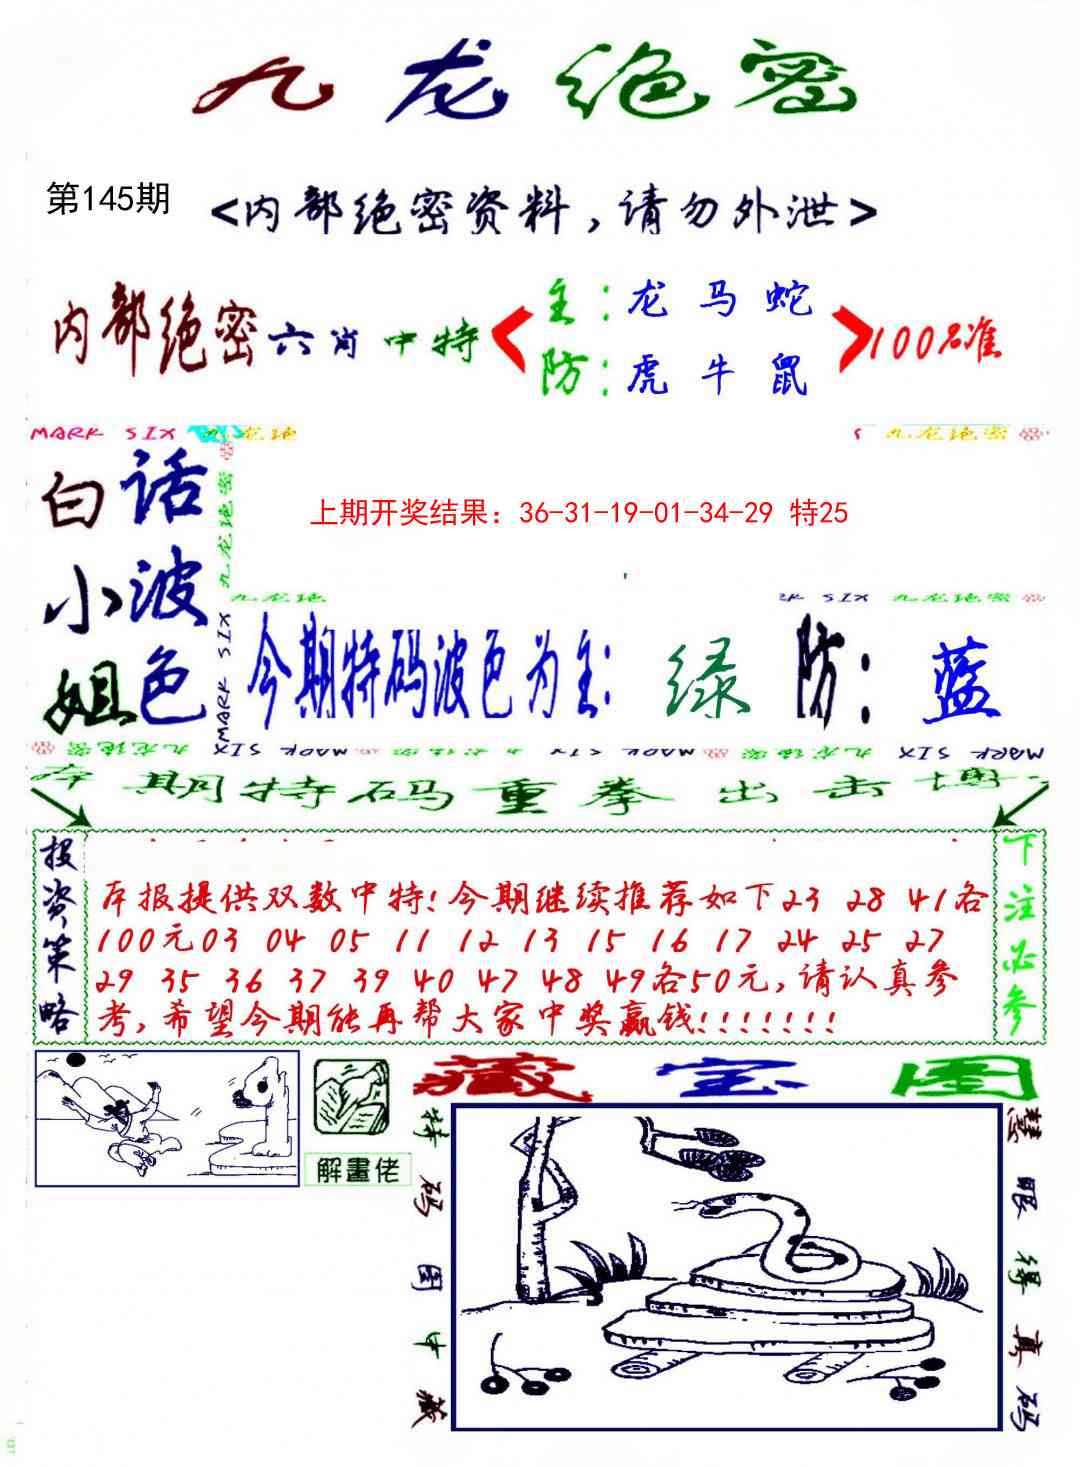 九龙绝密
第145期
<内部绝密资料,请勿外泄>
内部绝密六肖中特
主:龙 马 蛇
防:虎 牛 鼠
100%准
MARK SIX 九龙绝
九龙绝密
白话
小波
姐色
九龙绝密
MARK SIX
上期开奖结果：36-31-19-01-34-29 特25
九龙绝
SIX 九龙绝密
今期特码波色为主: 绿 防: 蓝
九龙绝密 MARK SIX MARK SIX 九龙绝密 MARK SIX 九龙绝密 MARK SIX
本期特码重拳出击博
投资策略
本报提供双数中特!今期继续推荐如下23 28 41各
100元03 04 05 11 12 13 15 16 17 24 25 27
29 35 36 37 39 40 47 48 49各50元,请认真参
考,希望今期能再帮大家中奖赢钱!!!!!!!
下注必参
解畫佬
藏宝图
特码图中藏
慧眼得真码